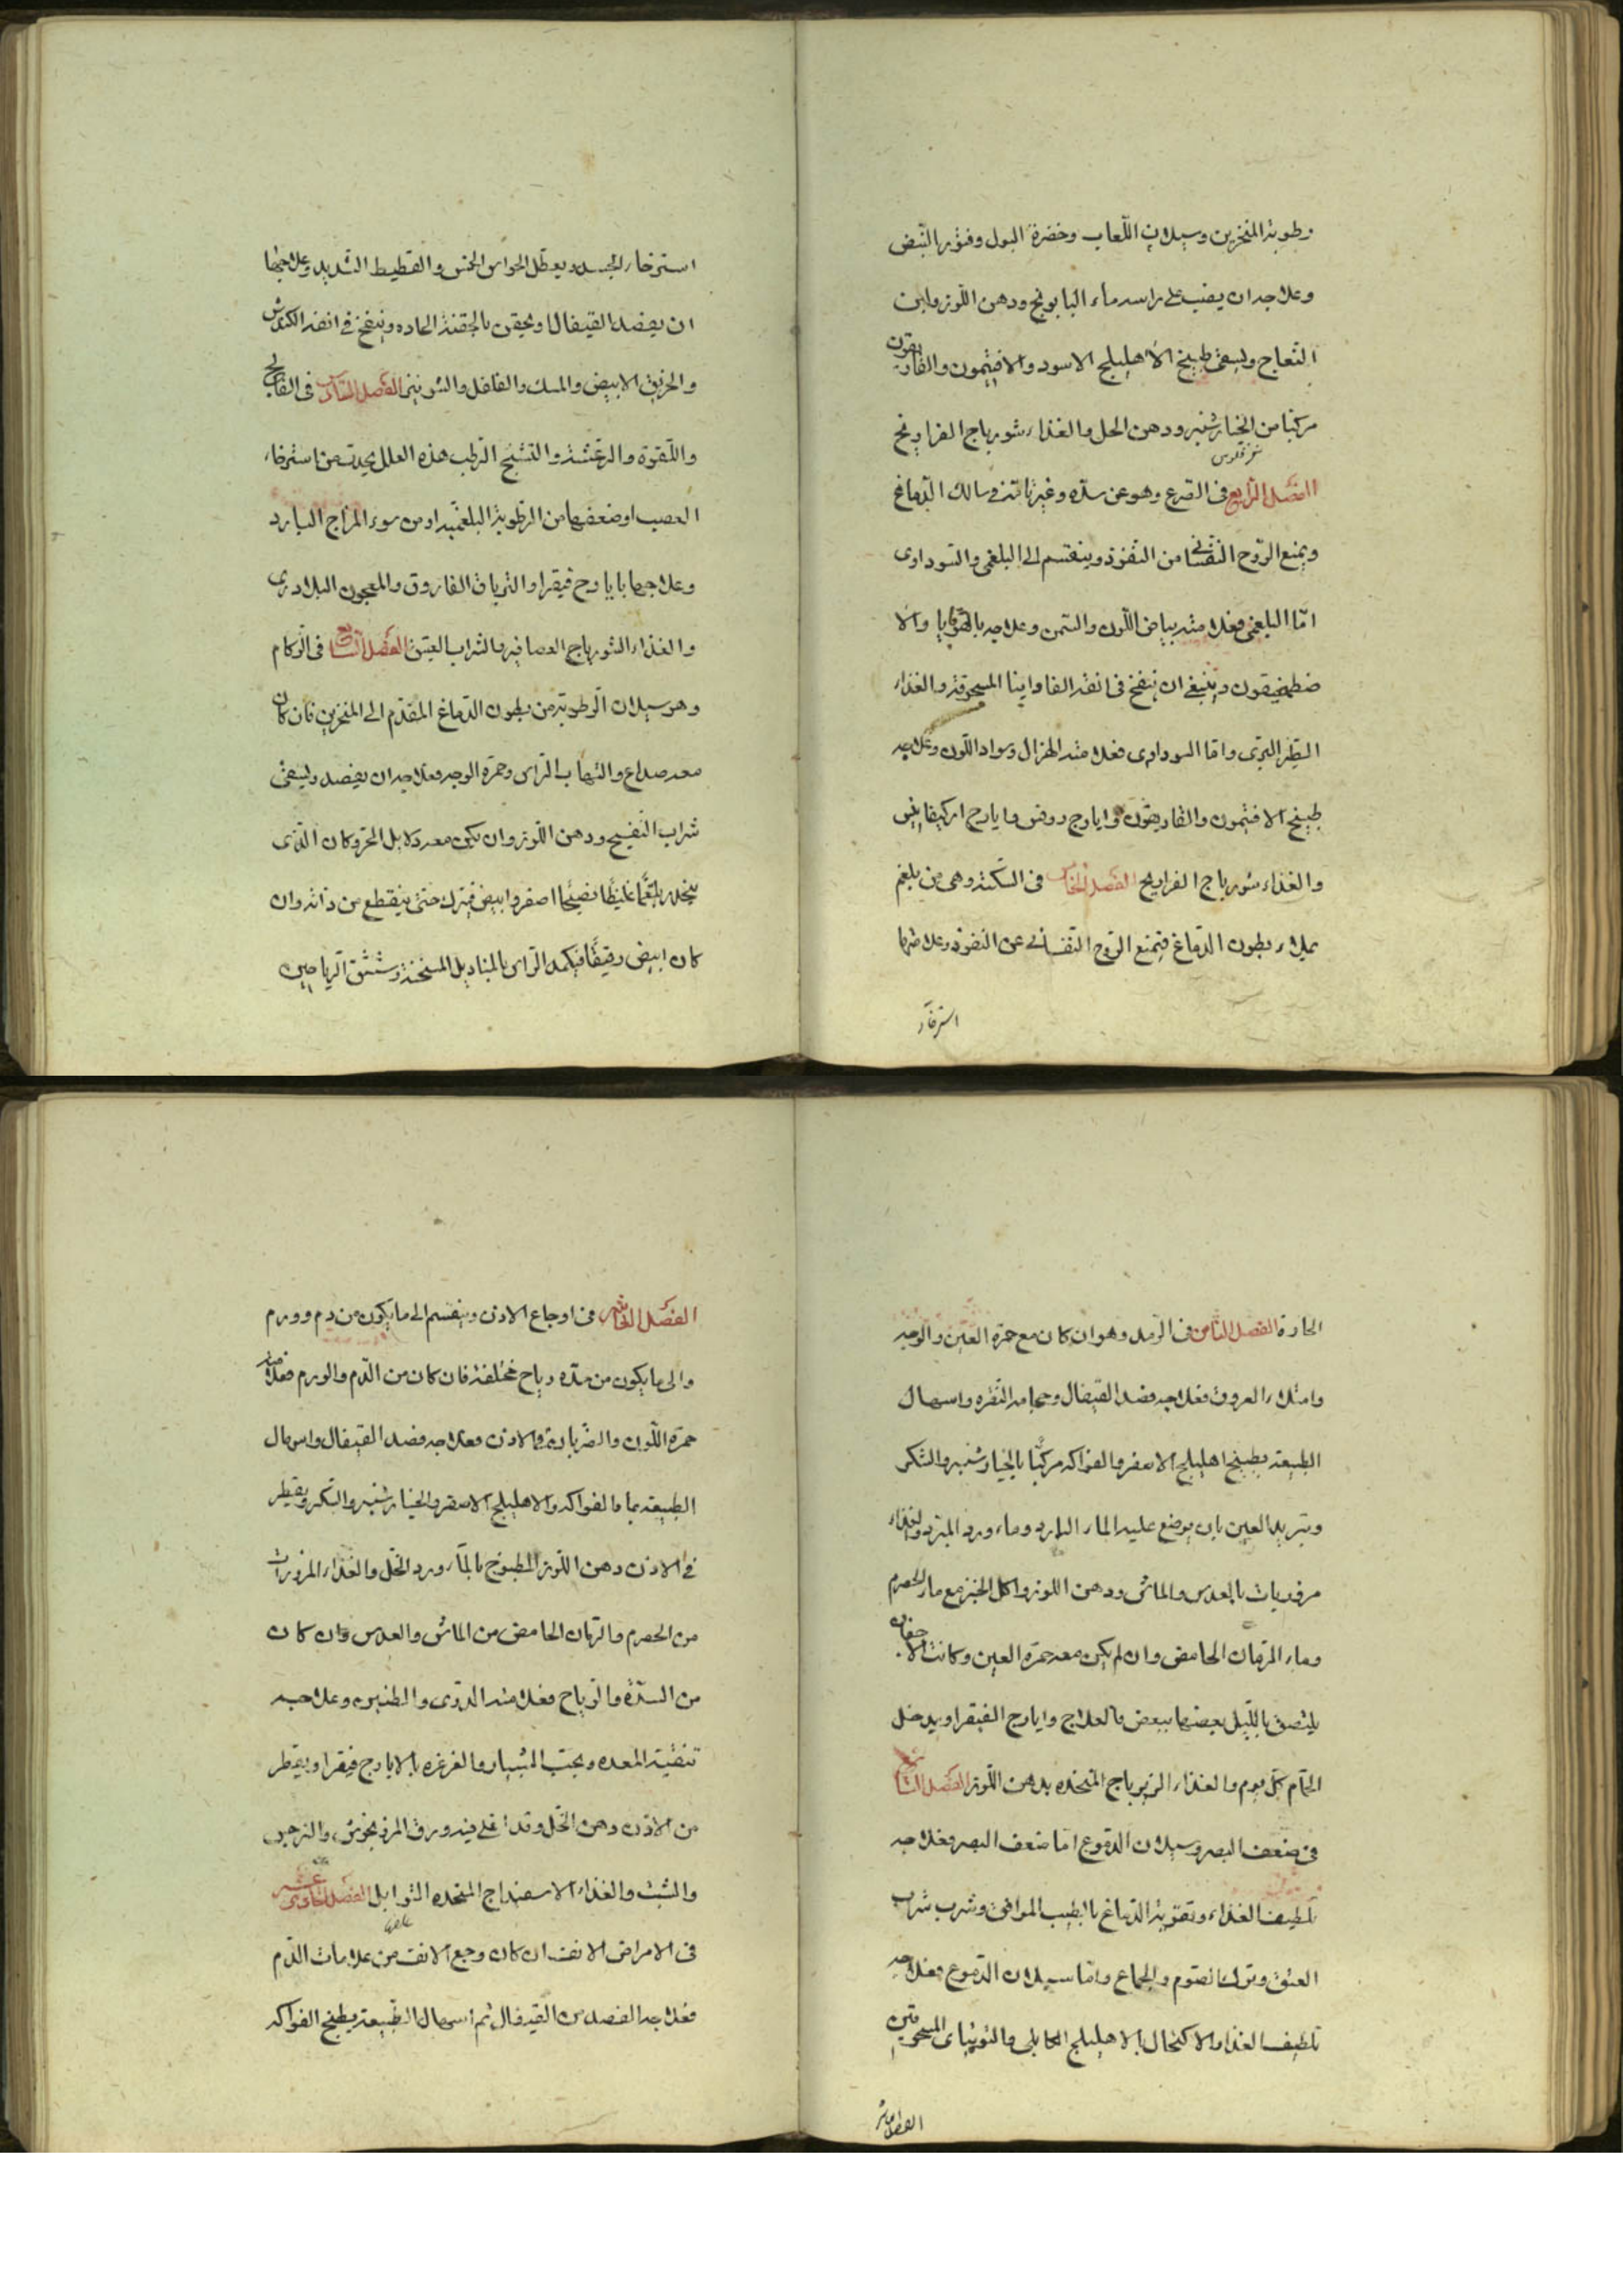 رطوبة المنخرين وسيلان اللعاب وخضرة البول وفتور النبض
وعلاجه ان يصب على راسه ماء البابونج ودهن اللوز ولبن
النعاج ويسقى طبيخ الاهليلج الاسود والافتيمون والغاريقون
مركبا من الخيار شنبر ودهن الحل والغذاء شورباج الفراريج
الفصل الرابع فى الصرع وهو عن سده وغير تامة فى مسالك الدماغ
ويمنع الروح النفسانى من النفوذ وينقسم الى البلغمى والسوداوى
امّا البلغمى فعلامته بياض اللون والسمن وعلاجه بالقوقايا والا
صطمخيقون وينبغى ان ينفخ فى انفه الفاوانيا المسحوقة والغذاء
الطير البرى واما السوداوى فعلامته الهزال وسواد اللون وعلاجه
طبيخ الافتيمون والغاريقون وايارج روفس وايارج اركيغانيس
والغذاء شورباج الفراريج الفصل الخامس فى السكتة وهى من بلغم
يملاء بطون الدماغ فيمنع الروح النفسانى عن النفوذ وعلامتها
استرخاء
استرخاء الجسد وبعطل الحواس الخمس والغطيط الشديد وعلاجها
ان يفصد القيفال ويحقن بالحقنة الحاده وينفخ فى انفه الكندش
والخربق الابيض والمسك والفلفل والشونيز الفصل السادس فى الفالج
واللقوة والرعشة والتشنج الرطب هذه العلل يحدث من استرخاء
العصب او ضعفها من الرطوبة البلغميه او من سوء المزاج البارد
وعلاجها بايارج فيقرا والترياق الفاروق والمعجون البلادرى
والغذاء الشورباج العصافير والشراب العتيق الفصل السابع فى الزكام
وهو سيلان الرطوبة من بطون الدماغ المقدم الى المنخرين فان كان
معه صداع والتهاب الراس وحمرة الوجه فعلاجه ان يفصد ويسقى
شراب البنفسج ودهن اللوز وان يكن معه دلايل الحر وكان الذى
ينحدر بلغما غليظا نضيجا اصفر وابيض فيترك حتى ينقطع من ذاته وان
كان ابيض رقيقا فيكمد الراس بالمناديل المسخنة وشتنشق الرياحين
الحارة الفصل الثامن فى الرمد وهو ان كان مع حمرة العين والوجه
وامتلاء العروق فعلاجه فصد القيفال وحجامة النقره واسهال
الطبيعة بطبيخ اهليلج الاصفر والفواكه مركبا بالخيار شنبر والسكر
وتبريد العين بان يوضع عليه الماء البارد وماء ورد المبرد والغذاء
مزوريات بالعدس والماش ودهن اللوز واكل الخبز مع ماء الحصرم
وماء الرمان الحامض وان لم يكن معه حمرة العين وكانت الاجفان
يلتصق بالليل بعضها ببعض فالعلاج وايارج الفيقرا ويدخل
الحمام كل يوم والغذاء الزيرباج المتخذه بدهن اللوز الفصل التاسع
فى ضعف البصر وسيلان الدموع امّا ضعف البصر فعلاجه
تلطيف الغذاء وتقوية الدماغ بالطيب الموافق وشرب شراب
العتيق وترك الصوم والجماع وامّا سيلان الدموع فعلاجه
تلطيف الغذا والاكتحال بالاهليلج الكابلى والتوتياى المسحوقين
الفصل العاشر
الفصل العاشر فى اوجاع الاذن وينقسم الى ما يكون من دم وورم
والى ما يكون من سده رياح مختلفة فان كان من الدم والورم فعلامته
حمرة اللون والضربان فى الاذن وعلاجه فصد القيفال واسهال
الطبيعة بماء الفواكه والاهليلج الاصفر والخيار شنبر والسكر ويقطر
فى الاذن دهن اللوز المطبوخ بالماء ورد الخل والغذاء المزورات
من الحصرم والرمان الحامض من الماش والعدس وان كان
من السدة والرياح فعلامته الدوى والطنين وعلاجه
تنقية المعده وبحب الشبيار والغرغره بالايارج فيقرا ويقطر
من الاذن دهن الخل وقد اغلى فيه ورق المرزنجوش والنرجس
والشبث والغذاء الاسفيداج المتخذه التوابل الفصل الحادى عشر
فى الامراض الانف ان كان وجع الانف من علامات الدم
فعلاجه الفصد من القيفال ثم اسهال الطبيعة بطبيخ الفواكه